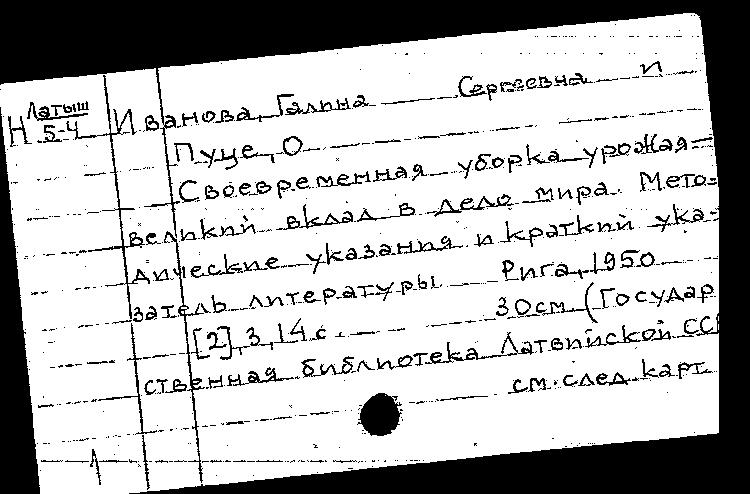 Латыш
Н 5-4
Иванова, Галина Сергеевна и
Пуце, О
Своевременная уборка урожая=
великий вклад в дело мира. Мето=
дические указания и краткий ука=
затель литературы Рига, 1950
[2], 3, 14 с. 30 см (Государ
ственная библиотека Латвийской ССР
см. след карт.
1